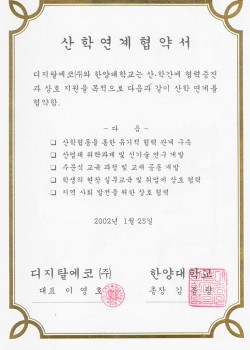 산학연계협약서
디지탈에코(주)와 한양대학교는 산·학간에 협력증진
과 상호 지원을 목적으로 다음과 같이 산학 연계를
협약함.
- 다 음 -
□ 산학협동을 통한 유기적 협력 관계 구축
□ 산업체 위탁과제 및 신기술 연구 개발
□ 주문식 교육 과정 및 교재 공동 개발
□ 학생의 현장 실무교육 및 취업에 상호 협력
□ 지역 사회 발전을 위한 상호 협력
2002년 1월 25일
디지탈에코 (주) 한양대학교
대표 이영호 총장 김종량